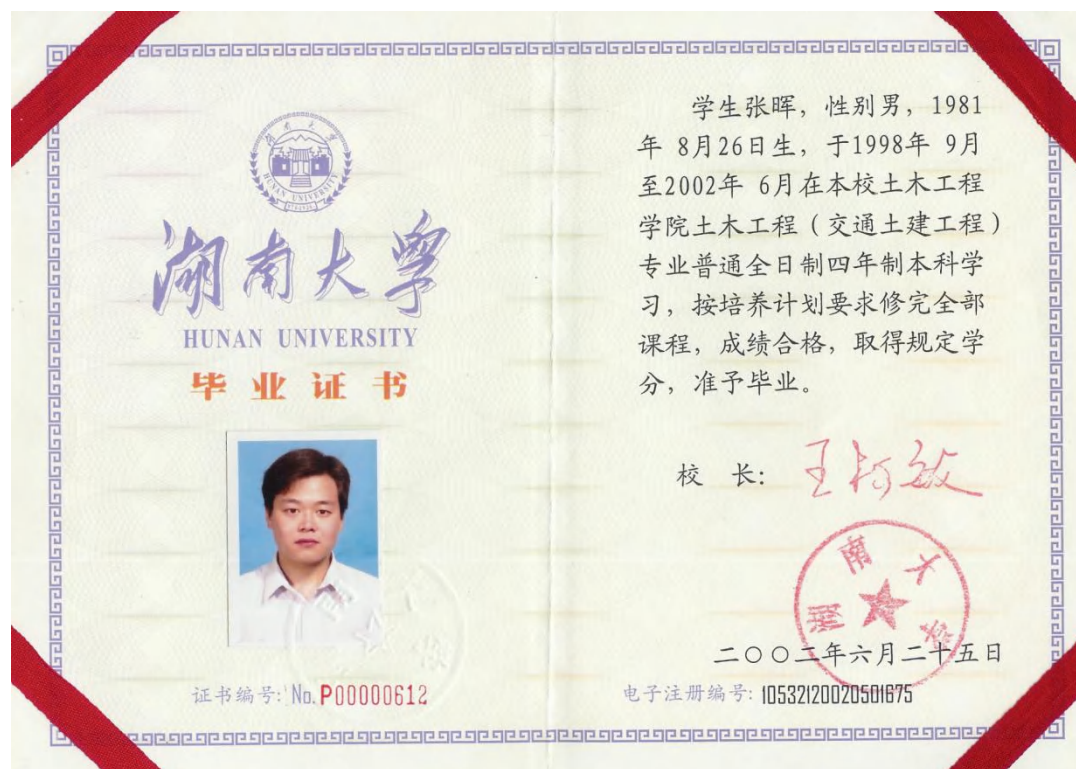 湖南大学
HUNAN UNIVERSITY
湖南大学
HUNAN UNIVERSITY
毕业证书
证书编号: No. P00000612
学生张晖，性别男，1981
年 8月26日生，于1998年 9月
至2002年 6月在本校土木工程
学院土木工程（交通土建工程）
专业普通全日制四年制本科学
习，按培养计划要求修完全部
课程，成绩合格，取得规定学
分，准予毕业。
校 长: 王柯敏
湖南大学
二〇〇二年六月二十五日
电子注册编号: 105321200205001675